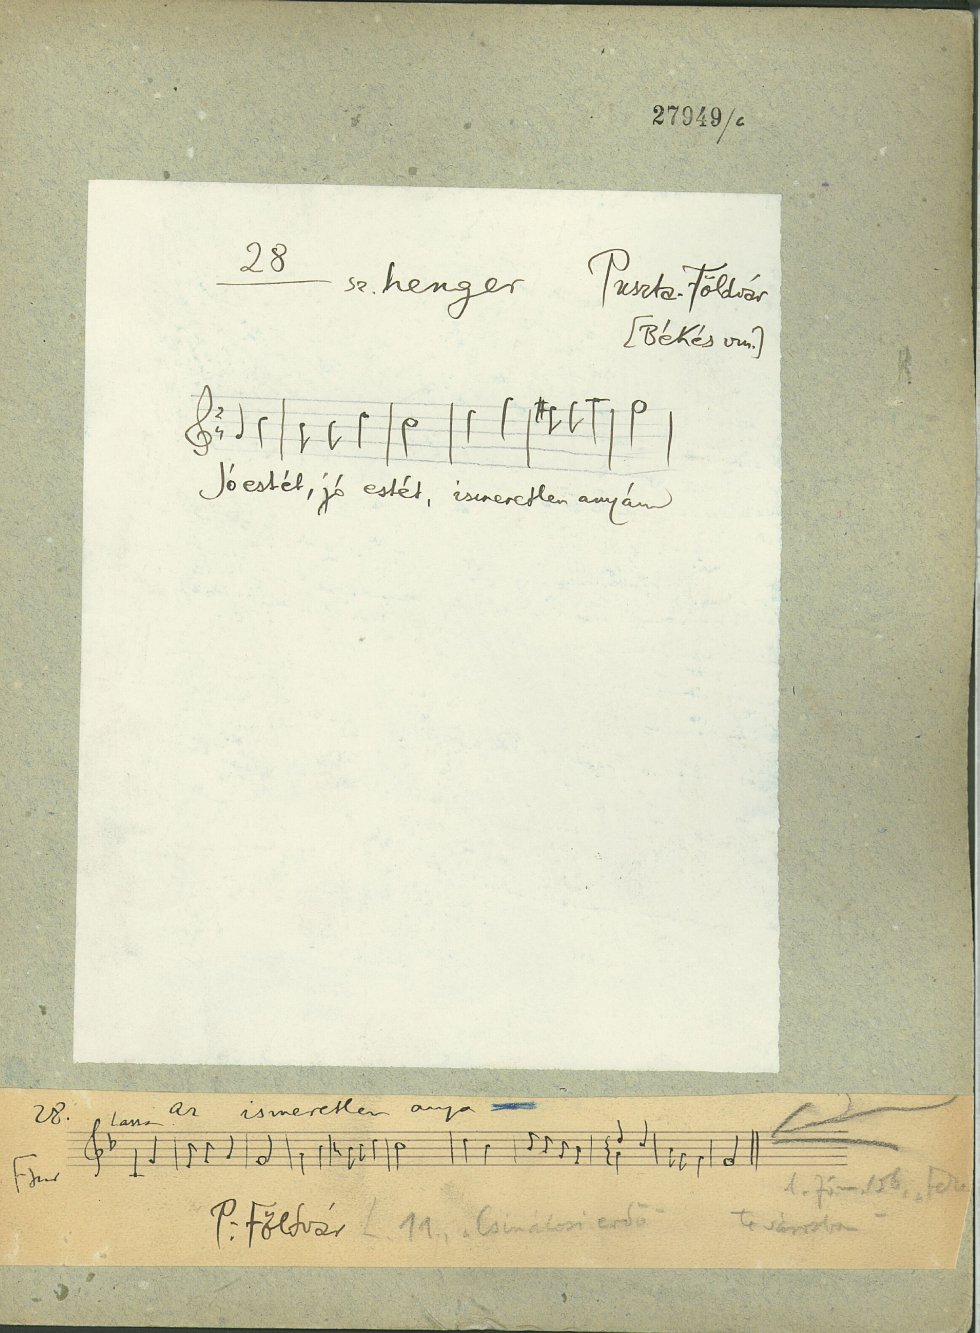 27949/c
28 sz. henger
Puszta-Földvár
[Békés vm.]
2
4
Jó estét, jó estét, ismeretlen anyám
28. Lassan Az ismeretlen anya
P. Földvár L. 11., „Csinálosi erdő"